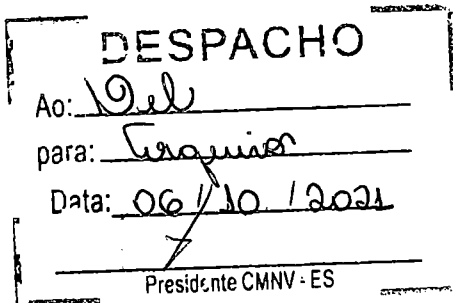 DESPACHO
Ao:
para: Arquivar
Data: 06/10/2021
Presidente CMNV - ES